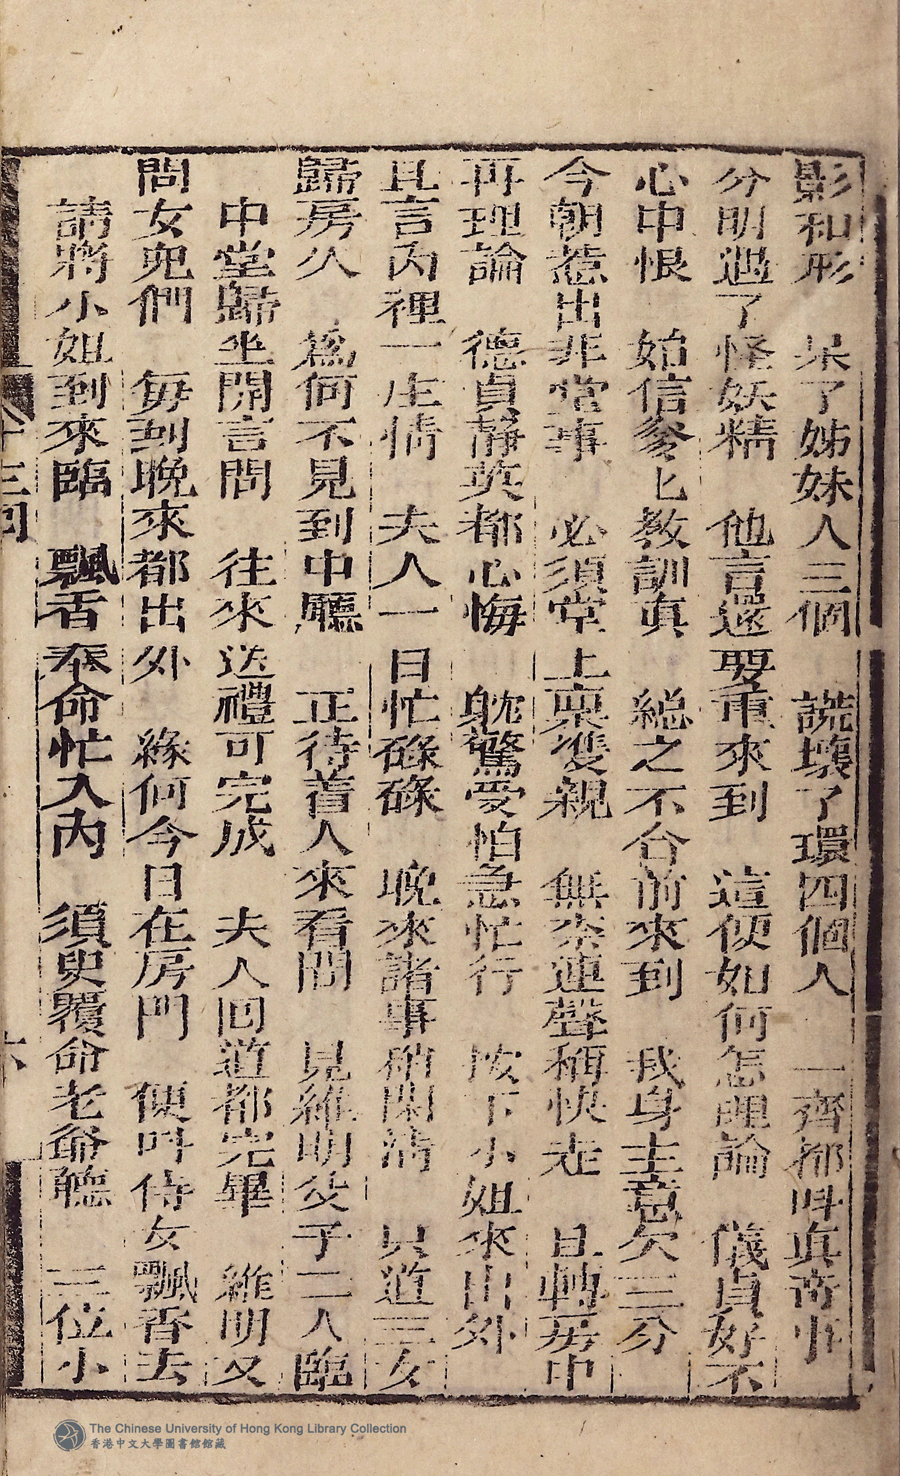 影和形　呆了姊妹人三個　謊壞了環四個人　一齊都呌真奇事
分明遇了怪妖精　他言還要重來到　這便如何怎理論　儀貞好不
心中恨　始信爹匕教訓真　総之不合前來到　我身主意欠三分
今朝惹出非常事　必須堂上稟𩀱親　無奈連聲稱快走　且轉房中
再理論　德貞靜英都心悔　躭驚受怕急忙行　按下小姐來出外
且言內裡一庄情　夫人一日忙碌碌　晚來諸事稍閑清　只道三女
歸房久　爲何不見到中廳　正待着人來看問　見維明父子二人臨
中堂歸坐開言問　往來送禮可完成　夫人回道都完畢　維明又
問女兒們　毎到晚來都出外　緣何今日在房門　便呌侍女飄香去
請將小姐到來臨　飄香奉命忙入內　須臾覆命老爺聽　三位小
十三回
六
The Chinese University of Hong Kong Library Collection
香港中文大學圖書館館藏